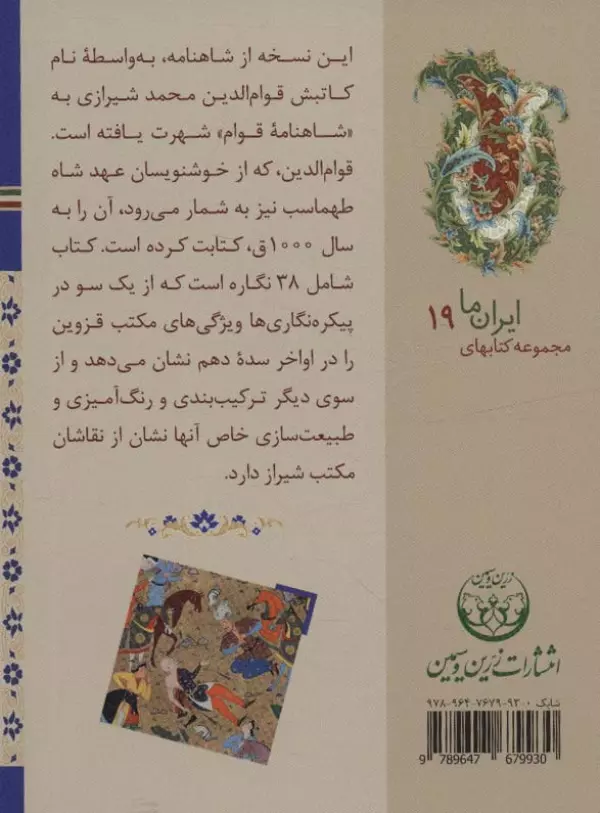 این نسخه از شاهنامه، به‌واسطهٔ نام
کاتبش قوام‌الدین محمد شیرازی به
«شاهنامهٔ قوام» شهرت یافته است.
قوام‌الدین، که از خوشنویسان عهد شاه
طهماسب نیز به شمار می‌رود، آن را به
سال ۱۰۰۰ق، کتابت کرده است. کتاب
شامل ۳۸ نگاره است که از یک سو در
پیکره‌نگاری‌ها ویژگی‌های مکتب قزوین
را در اواخر سدهٔ دهم نشان می‌دهد و از
سوی دیگر ترکیب‌بندی و رنگ‌آمیزی و
طبیعت‌سازی خاص آنها نشان از نقاشان
مکتب شیراز دارد.
ایران ما ۱۹
مجموعه کتابهای
زرین و سیمین
انتشارات زرین و سیمین
شابک ۹۷۸-۹۶۴-۷۶۷۹-۹۳-۰
9 789647 679930